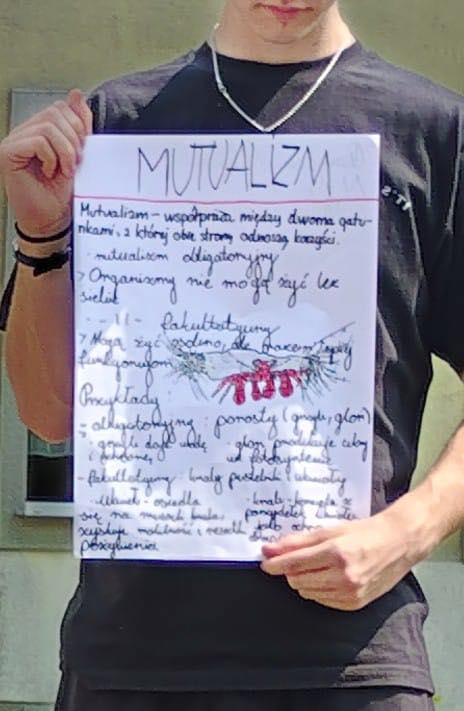 MUTUALIZM
Mutualizm - współpraca między dwoma gatu-
nkami, z której obie strony odnoszą korzyści.
- mutualizm obligatoryjny
> Organizmy nie mogą żyć bez
siebie
- -11- fakultatywny
> Mogą żyć osobno, ale razem lepiej
funkcjonują
Przykłady:
- obligatoryjny: porosty (grzyb, glon)
· grzyb daje wodę · glon produkuje cukry
i ochronę,
- fakultatywny: kraby pustelniki i ukwiały
· ukwiał - osiedla · krab korzysta z
się na muszli kraba,
zyskuje mobilność i resztki
pożywienia.